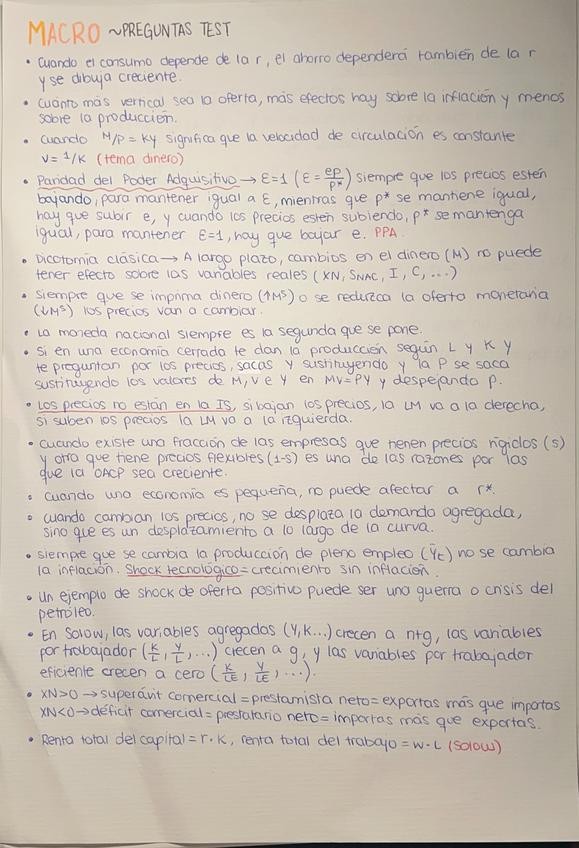 MACRO ~PREGUNTAS TEST
• Cuando el consumo depende de la r, el ahorro dependerá también de la r
y se dibuja creciente.
• Cuánto más vertical sea la oferta, más efectos hay sobre la inflación y menos
sobre la producción.
• Cuando M/P = KY significa que la velocidad de circulación es constante
V = 1/K (tema dinero)
• Paridad del Poder Adquisitivo → ε=1 (ε = ep/p*) siempre que los precios estén
bajando, para mantener igual a ε, mientras que p* se mantiene igual,
hay que subir e, y cuando los precios estén subiendo, p* se mantenga
igual, para mantener ε=1, hay que bajar e. PPA.
• Dicotomía clásica → A largo plazo, cambios en el dinero (M) no puede
tener efecto sobre las variables reales (XN, SNAC, I, C, ...)
• Siempre que se imprima dinero (↑Mˢ) o se reduzca la oferta monetaria
(↓Mˢ) los precios van a cambiar.
• La moneda nacional siempre es la segunda que se pone.
• Si en una economía cerrada te dan la producción según L y K y
te preguntan por los precios, sacas Y sustituyendo y la P se saca
sustituyendo los valores de M, V e Y en MV=PY y despejando P.
• Los precios no están en la IS, si bajan los precios, la LM va a la derecha,
si suben los precios la LM va a la izquierda.
• Cuando existe una fracción de las empresas que tienen precios rígidos (s)
y otra que tiene precios flexibles (1-s) es una de las razones por las
que la OACP sea creciente.
• Cuando una economía es pequeña, no puede afectar a r*.
• Cuando cambian los precios, no se desplaza la demanda agregada,
sino que es un desplazamiento a lo largo de la curva.
• Siempre que se cambia la producción de pleno empleo (Ȳt) no se cambia
la inflación. Shock tecnológico = crecimiento sin inflación.
• Un ejemplo de shock de oferta positivo puede ser una guerra o crisis del
petróleo.
• En Solow, las variables agregados (Y, K...) crecen a n+g, las variables
por trabajador (K/L, Y/L, ...) crecen a g, y las variables por trabajador
eficiente crecen a cero (K/LE, Y/LE, ...).
• XN>0 → superávit comercial = prestamista neto = exportas más que importas
XN<0 → déficit comercial = prestatario neto = importas más que exportas.
• Renta total del capital = r·K, renta total del trabajo = w·L (Solow)